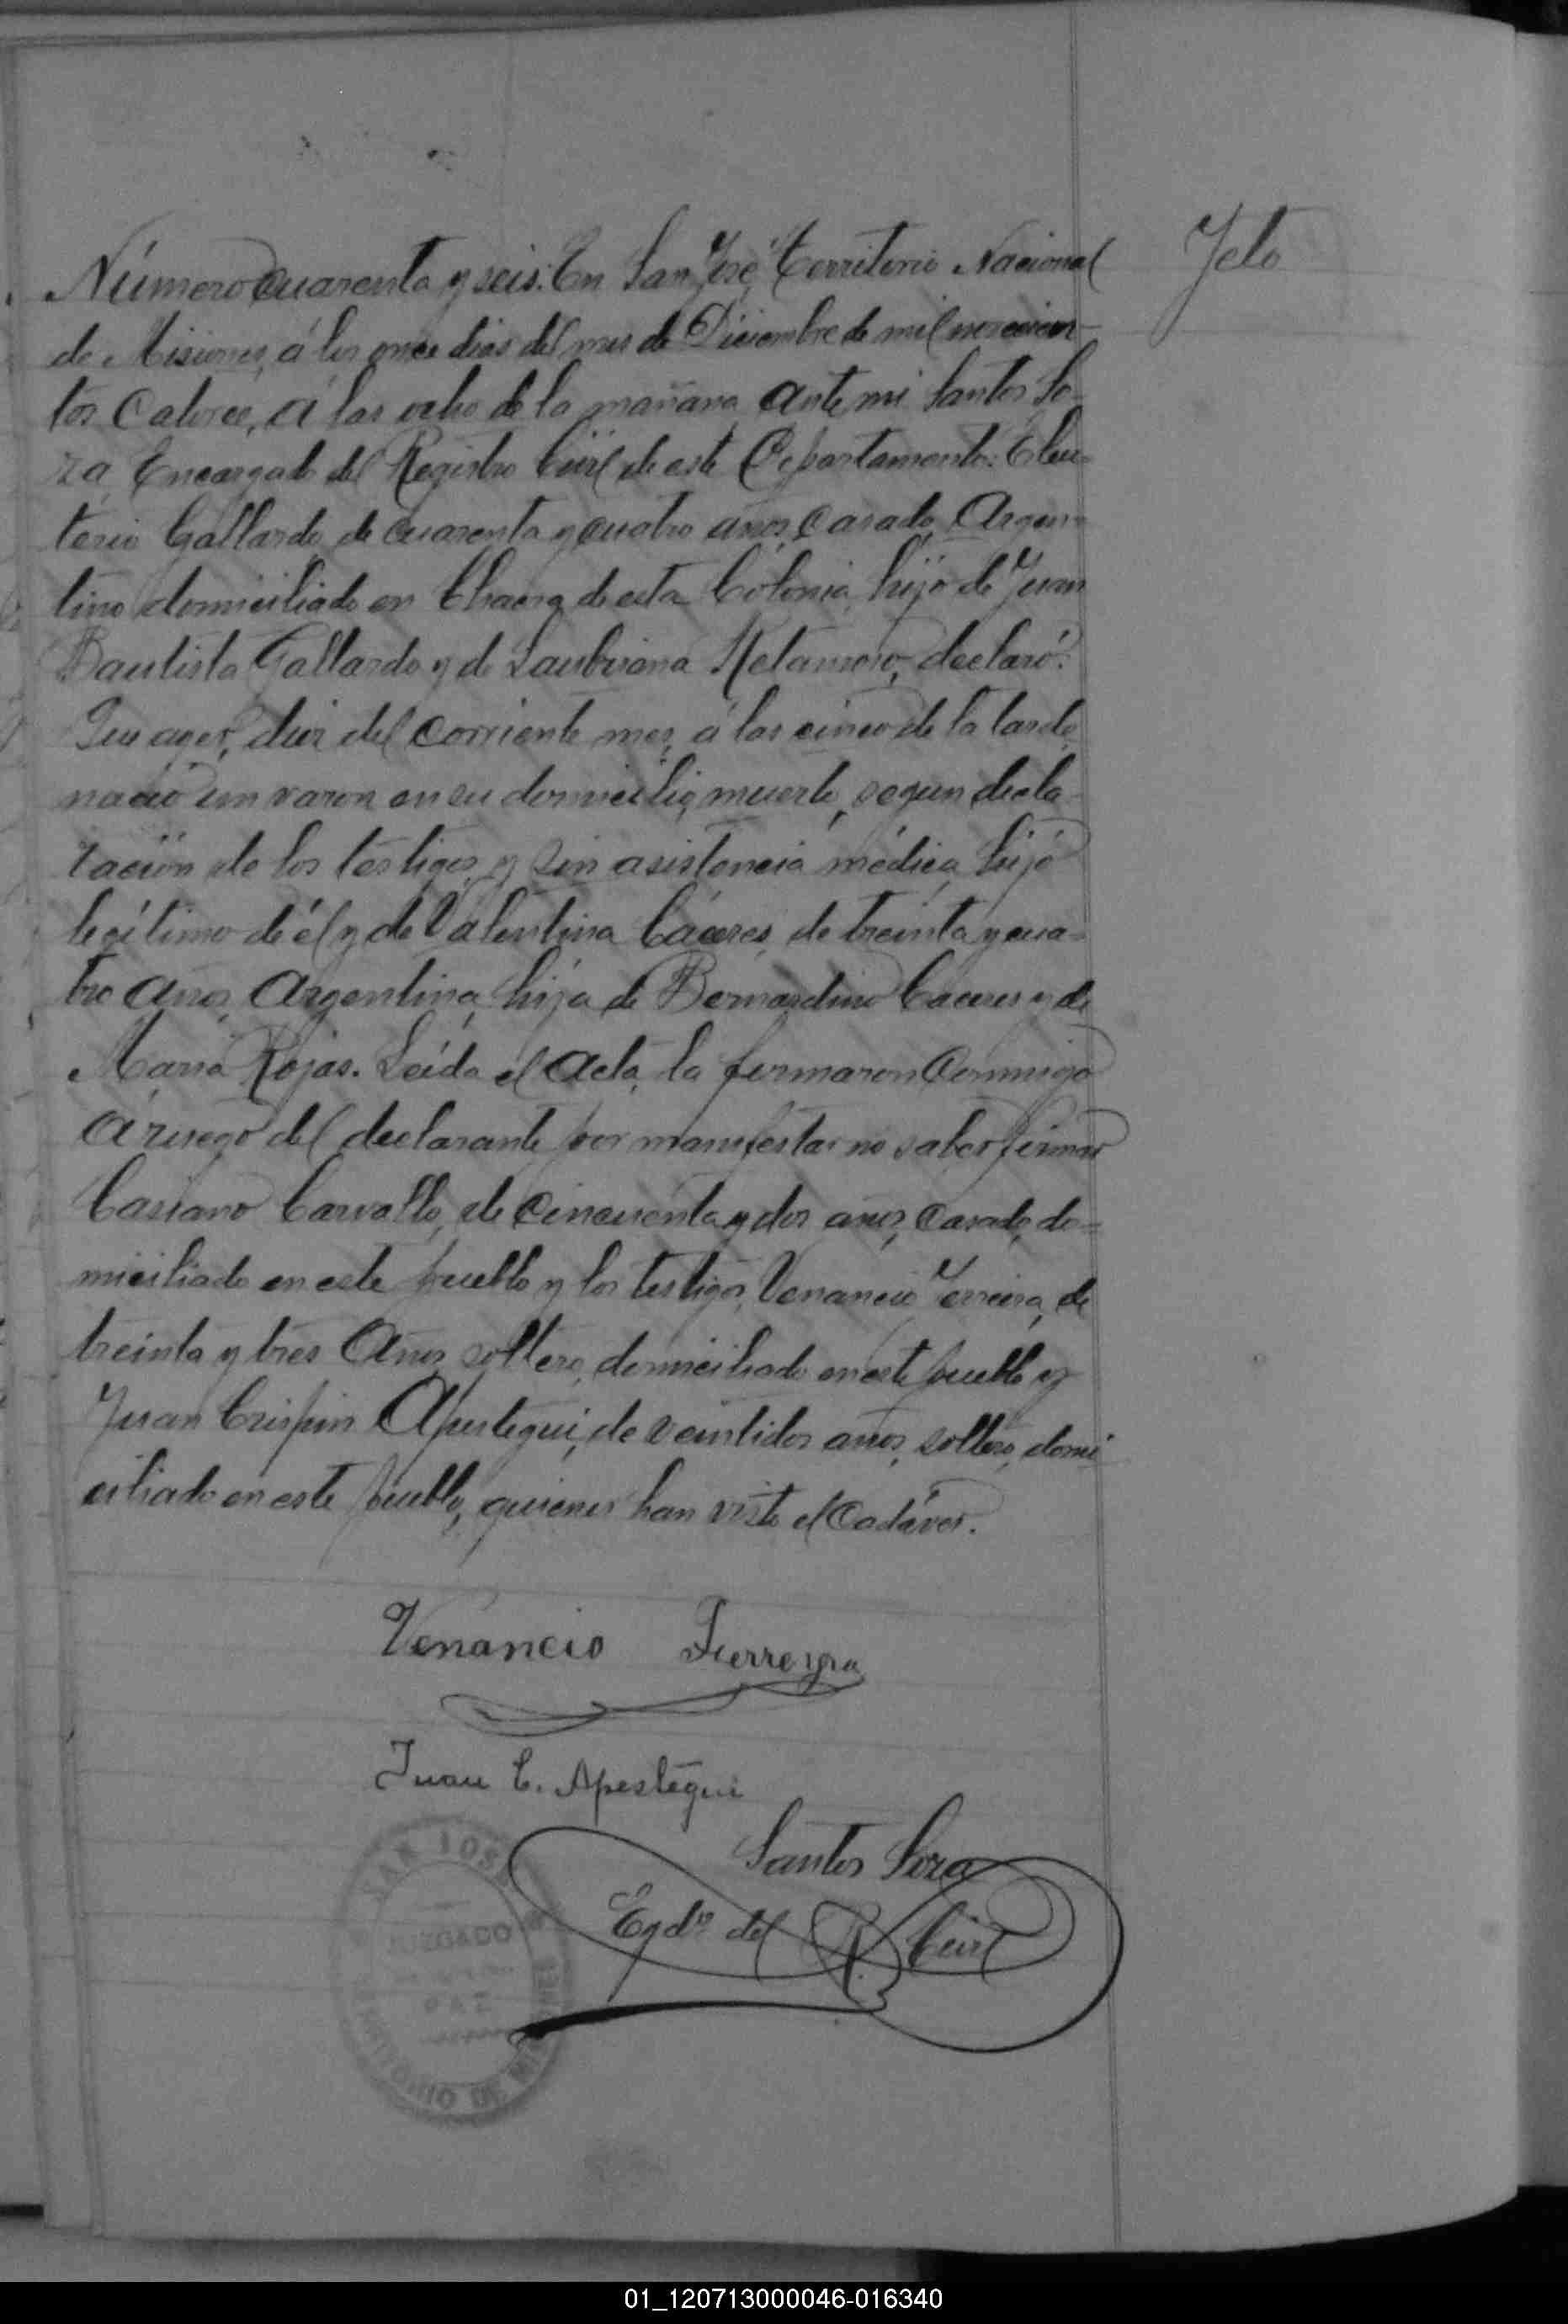 Feto
Número cuarenta y seis. En San José, Territorio Nacional
de Misiones, á los once dias del mes de Diciembre de mil novecien-
tos Catorce, á las ocho de la mañana, ante mi Santos So-
za, Encargado del Registro Civil de este Departamento: Eleu-
terio Gallardo, de cuarenta y cuatro años, casado, Argen-
tino domiciliado en Chacra de esta Colonia, hijo de Juan
Bautista Gallardo y de Retamoso, declaró:
Que ayer, diez del corriente mes, á las cinco de la tarde,
nació un varon en su domicilio, muerto, segun decla-
ración de los testigos, y sin asistencia médica, hijo
legítimo de él y de Valentina Cáceres, de treinta y cua-
tro años, Argentina, hija de Bernardino Caceres y de
Maria Rojas. Leída el acta, la firmaron conmigo
á ruego del declarante por manifestar no saber firmar
Casiano Carvallo, de cincuenta y dos años, casado, do-
miciliado en este pueblo y los testigos, Venancio Ferreira, de
treinta y tres años, soltero, domiciliado en este pueblo y
Juan Crispin Apestegui, de veintidos años, soltero, domi
ciliado en este pueblo, quienes han visto el Cadáver.
Venancio Ferreyra
Juan C. Apestegui
Santos Soza
Egdo. del R. Civil
SAN JOSE
JUZGADO
PAZ
TERRITORIO DE MISIONES
01_120713000046-016340